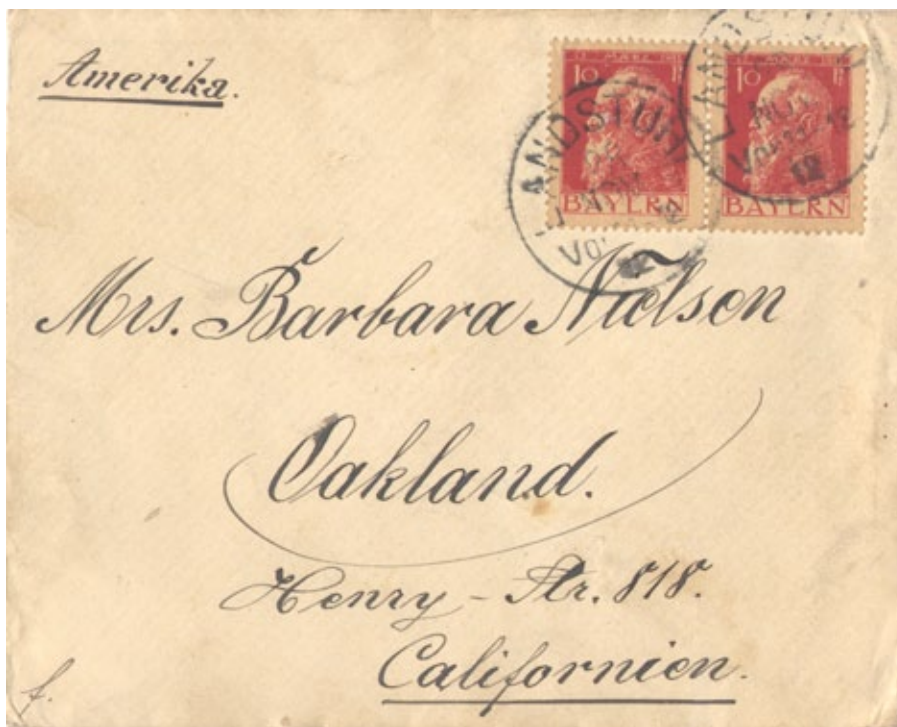 Amerika.
10 10
BAYERN BAYERN
LANDSTUHL
NOV.
12
Mrs. Barbara Nielsen
Oakland.
Henry - Str. 818.
Californien.
f.